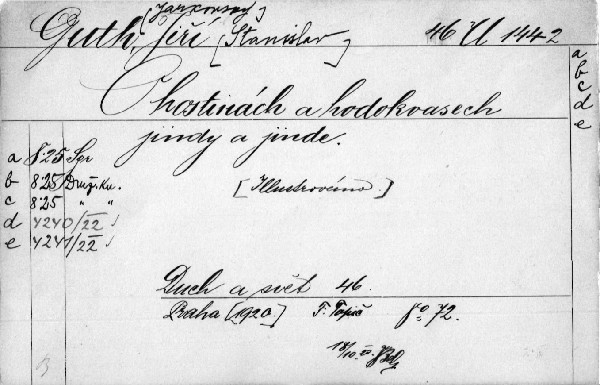 [Jarkovský]
Guth, Jiří [Stanislav] 46 U 1442
a
b
c
d
e
O hostinách a hodokvasech
jindy a jinde.
a 8.25 Ser
b 8.25 Druž. Ku.
c 8.25 " "
d 4240/22
e 4241/22
[Illustrováno.]
Duch a svět 46.
Praha [1920] F. Topič 8° 72.
18/10